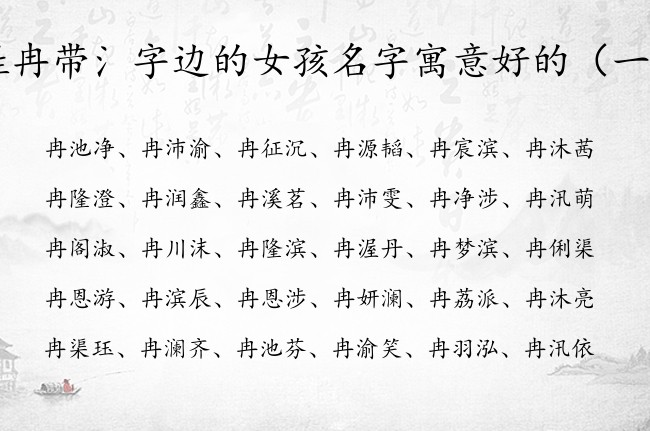 姓冉带氵字边的女孩名字寓意好的（一
冉池净、冉沛渝、冉征沉、冉源韬、冉宸滨、冉沐茜
冉隆澄、冉润鑫、冉溪茗、冉沛雯、冉净涉、冉汛萌
冉阁淑、冉川沫、冉隆滨、冉渥丹、冉梦滨、冉俐渠
冉恩游、冉滨辰、冉恩涉、冉妍澜、冉荔派、冉沐亮
冉渠珏、冉澜齐、冉池芬、冉渝笑、冉羽泓、冉汛依